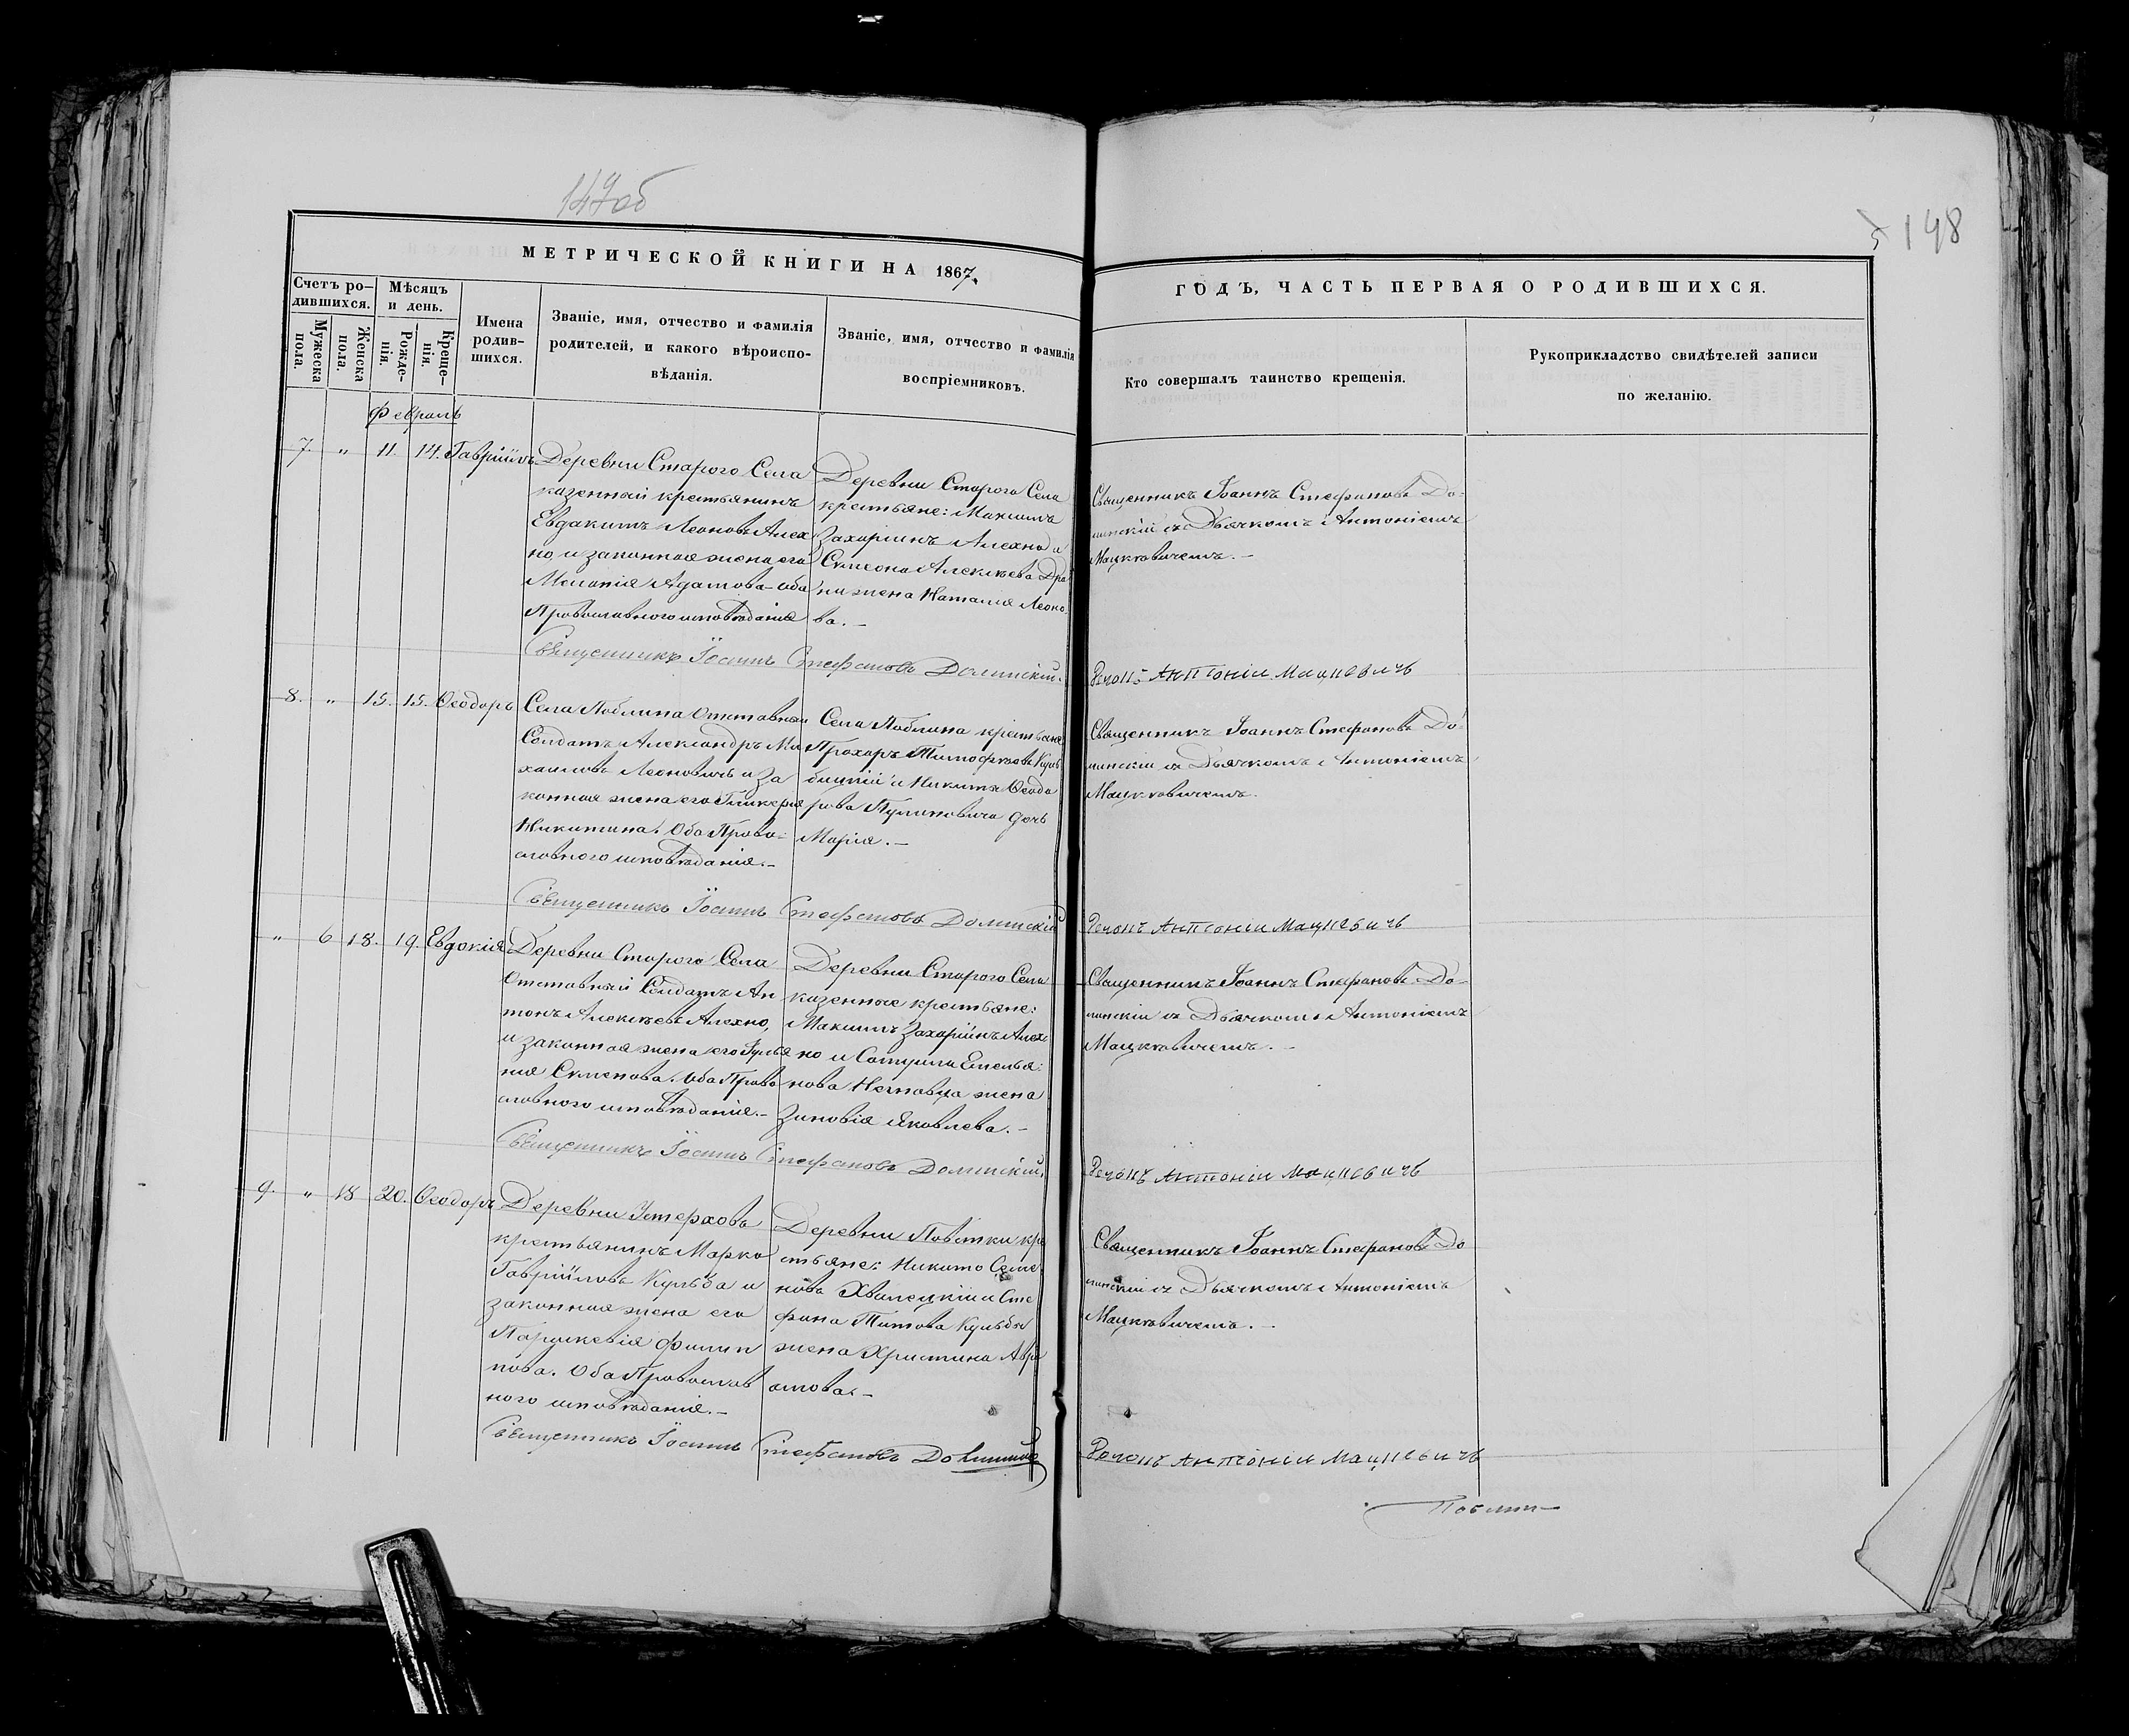 147об
148
МЕТРИЧЕСКОЙ КНИГИ НА 1867.
ГОДЪ, ЧАСТЬ ПЕРВАЯ О РОДИВШИХСЯ.
Счетъ ро-
дившихся.
Мужеска
пола.
Женска
пола.
Мѣсяцъ
и день.
Рожде-
нія.
Креще-
нія.
Имена
родив-
шихся.
Званіе, имя, отчество и фамилія
родителей, и какого вѣроиспо-
вѣданія.
Званіе, имя, отчество и фамилія
воспріемниковъ.
Кто совершалъ таинство крещенія.
Рукоприкладство свидѣтелей записи
по желанію.
Февраль
7. " 11. 14. Гавріилъ
Деревни Старого Села
казенный крестьянинъ
Евдакимъ Леоновъ Алех
но, и законная жена его
Меланія Адамова - оба
Православного исповѣданія
Деревни Старого Села
крестьяне: Максимъ
Захаріинъ Алехно и
Симеона Алексѣева Дра
ни жена Наталія Леоно-
ва. -
Священникъ Іоаннъ Стефановъ До-
линскій съ Дьячкомъ Антоніемъ
Мацкевичемъ. -
Священникъ Іоаннъ Стефановъ Долинскій.
Антоніи Мацкевичъ
8. " 15. 15. Ѳеодоръ
Села Поблина Отставный
Солдатъ Александръ Ми
хаиловъ Леоновичъ и за
конная жена его Гликерія
Никитина. Оба Право-
славного исповѣданія. -
Села Поблина крестьяне
Прохоръ Тимофеевъ
бицкій и Никиты Ѳеодо
рова Пулиновича дочь
Марія. -
Священникъ Іоаннъ Стефановъ До-
линскій съ Дьячкомъ Антоніемъ
Мацкевичемъ.
Священникъ Іоаннъ Стефановъ Долинскій
Антоніи Мацкевичъ
" 6 18. 19. Евдокія
Деревни Старого Села
Отставный Солдатъ Ан
тонъ Алексѣевъ Алехно,
и законная жена его Улья
нія Семенова. Оба Право
славного исповѣданія. -
Деревни Старого Села
казенные крестьяне:
Максимъ Захаріинъ Алех-
но и Емелья-
нова жена
Зиновія Яковлева. -
Священникъ Іоаннъ Стефановъ До-
линскій съ Дьячкомъ Антоніемъ
Мацкевичемъ. -
Священникъ Іоаннъ Стефановъ Долинскій.
Антоніи Мацкевичъ
9. " 18 20. Ѳеодоръ
Деревни Устерхова
крестьянинъ Марко
Гавріиловъ Кульба и
законная жена его
Параскевія Филип
пова. Оба Православ
ного исповѣданія. -
Деревни Повѣтки кре
стьяне: Никита Семе
новъ Хвалецкій и Сте
фана Титова Кульбы
жена Христина Авра
амова. -
Священникъ Іоаннъ Стефановъ До
линскій съ Дьячкомъ Антоніемъ
Мацкевичемъ. -
Священникъ Іоаннъ Стефановъ Долинскій
Антоніи Мацкевичъ